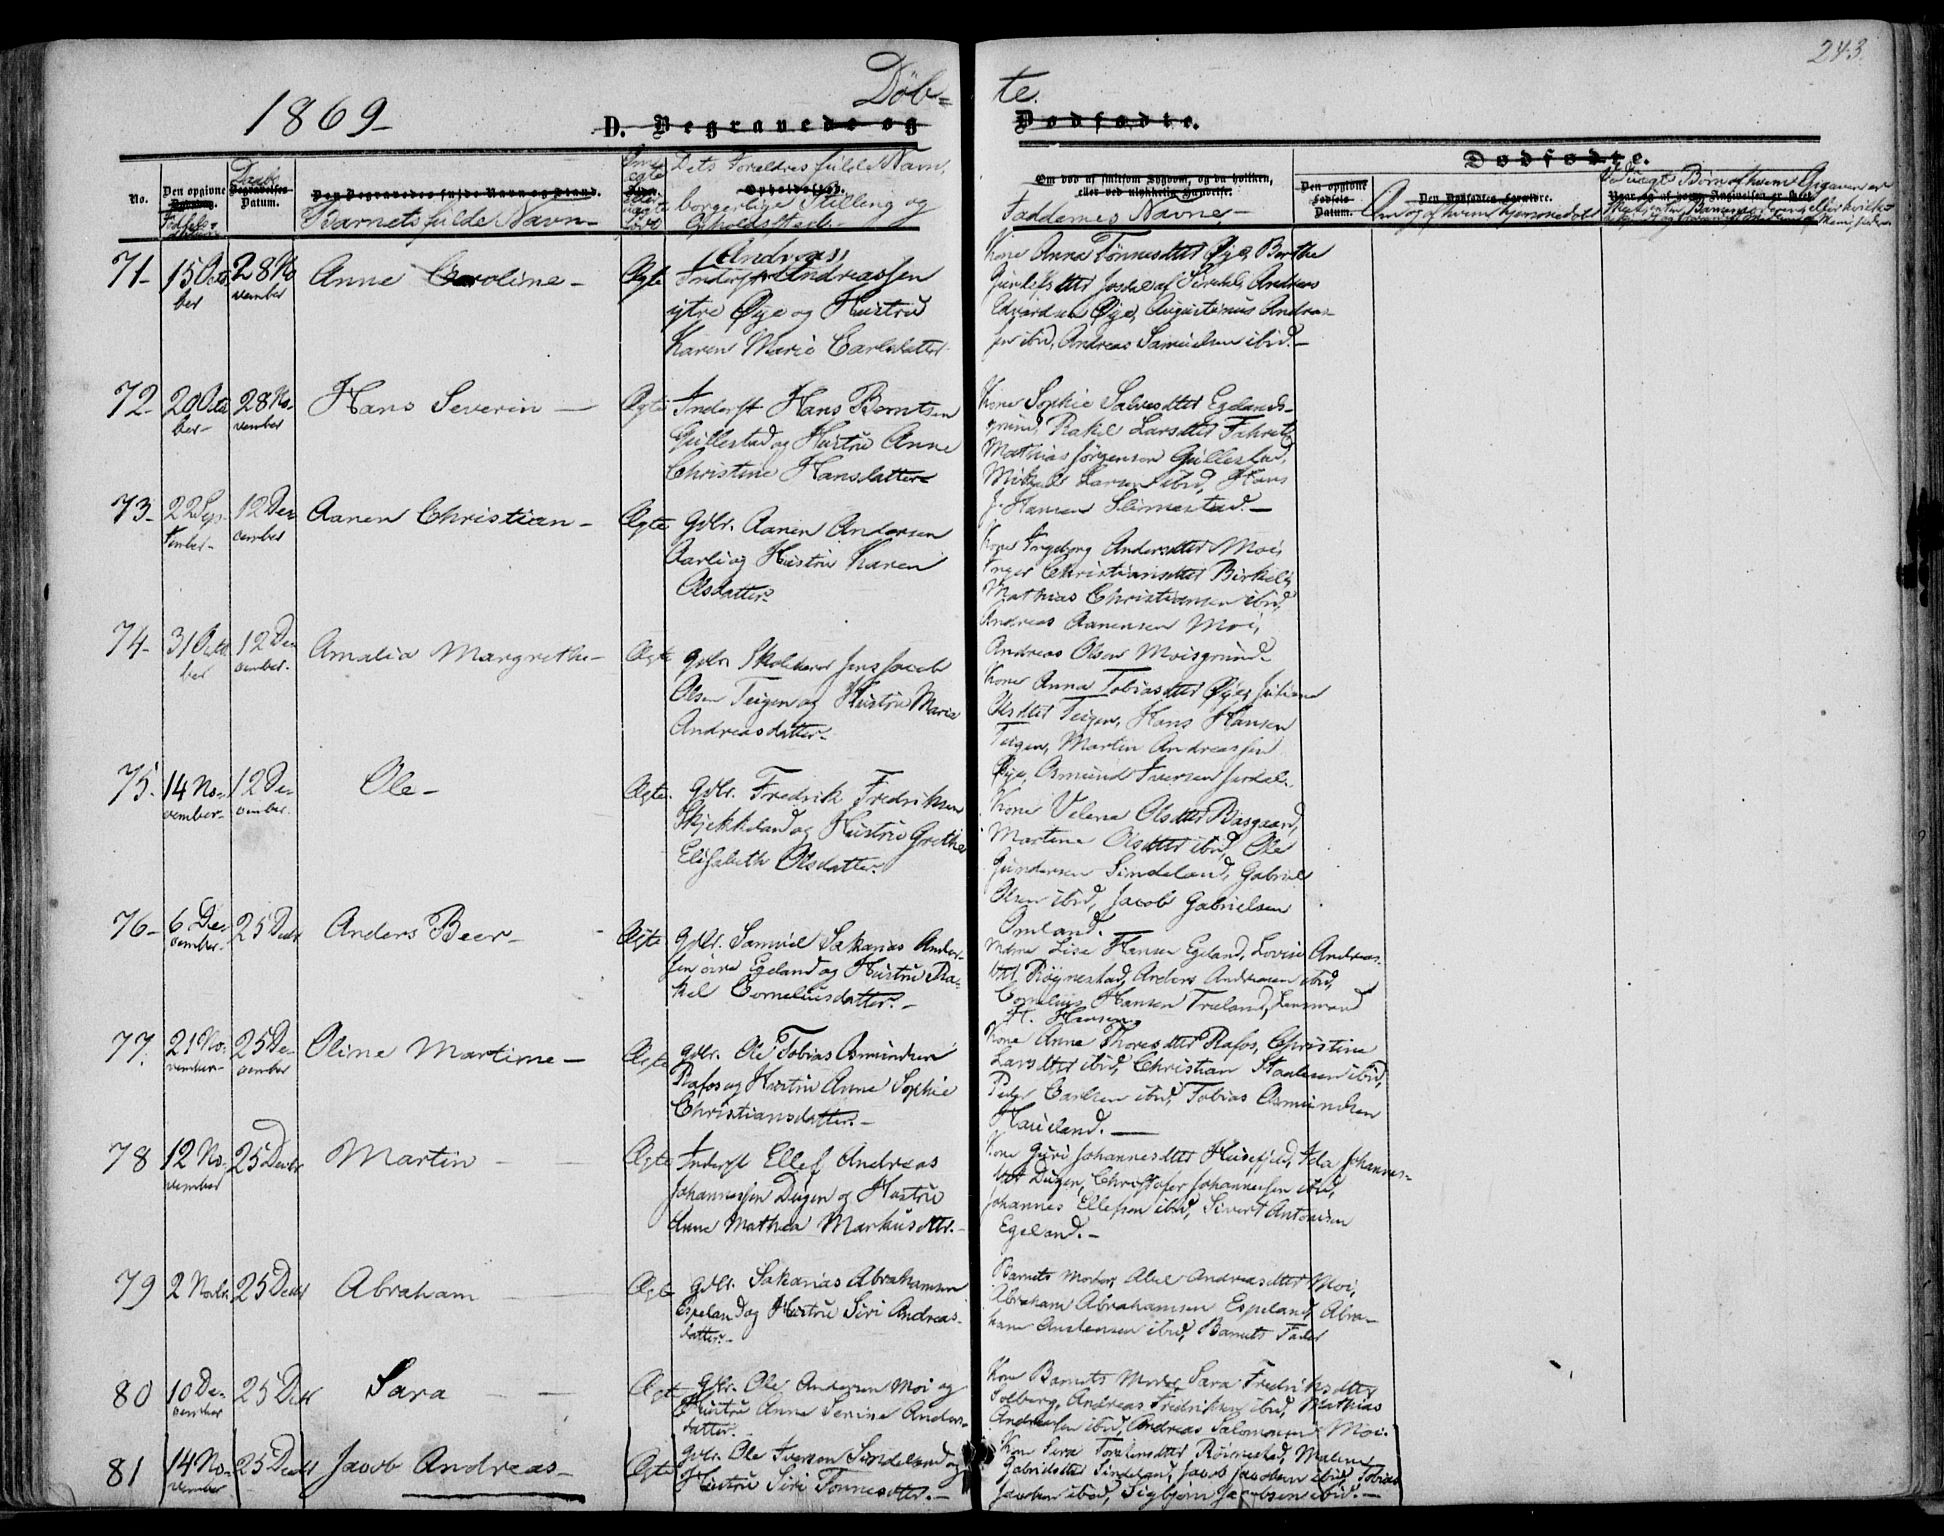 243.
1869-
Døb-
te.
D. Begravede og
Dødfødte.
Dødfødte.
No.
Den opgivne
Fødsels-
Daabs
Begravelses-
Datum.
Den Begravedes fulde Navn og Stand.
Barnets fulde Navn-
Dets Forældres fulde Navn,
Opholdssted.
borgerlige Stilling og
Opholdssted.
Om død af smitsom Sygdom, og da hvilken,
eller ved ulykkelig Hændelse.
Faddernes Navne-
Den opgivne
Fødsels-
Datum.
Den Dødfødtes Forældre.
71-
15 Octo
ber
28 No
vember
Anne Caroline-
Ægte
(Andreas)
Inderst Andreassen
ytre Øye og Hustru
Karen Marie Carlsdatter
Kone Anna Tønnesdtter Øye, Berthe
Gunlefsdtter Josdal af Siredal, Andreas
Edvardsen Øye, Augustinus Andreas-
sen ibid, Andreas Samuelsen ibid.-
72-
20 Octo
ber-
28 No-
vember
Hans Severin-
Ægte
Inderst Hans Berntsen
Gullestad og Hustru Anne
Christine Hansdatter
Kone Sophie Salvesdtter Egelands-
grund, Rakel Larsdtter
Mathias Jørgensen Gullestad,
Larsen ibid, Hans
J. Hansen
73-
22 Sep-
tember-
12 De
cember
Aanen Christian-
Ægte
Gdbr. Aanen Andersen
Aarli og Hustru Karen
Olsdatter
Kone Ingeborg Andersdtter Moi,
Inger Christiansdtter Birkeli,
Mathias Christiansen ibid,
Andreas Aanensen Moi,
Andreas Olsen Moisgrund-
74-
31 Octo
ber
12 De
cember-
Amalia Margrethe-
Ægte
Gdbr. Skolelærer Jens Jacob
Olsen Teigen og Hustru Maria
Andreasdatter-
Kone Anna Tobiasdtter Øye, Juliane
Olsdtter Teigen, Hans Hansen
Teigen, Martin Andreassen
Øye, Asmund Iversen Josdal.
75-
14 No-
vember-
12 De-
cember
Ole-
Ægte.
Gdbr. Fredrik Fredriksen
Skjekkeland og Hustru Grethe
Elisabeth Olsdatter.
Kone Velene Olsdtter Risgaard,
Martine Olsdtter ibid, Ole
Gundersen Sindeland, Gabriel
Olsen ibid, Jacob Gabrielsen
Omland.
76-
6 De-
cember-
25 Decbr
Anders Beer-
Ægte
Gdbr. Samuel Sakarias Ander-
sen øvre Egeland og Hustru Ra-
kel Corneliusdatter.-
Lise Hansen Egeland, Lovise Andreas-
dtter Røynestad, Anders Andreasen ibid,
Cornelius Hansen Treland, Lensmand
H. Hansen
77.
21 No-
vember-
25 De-
cember
Oline Martine-
Ægte
Gdbr. Ole Tobias Asmundsen
Rafos og Hustru Anne Sophie
Christiansdatter.-
Kone Anne Thoresdtter Rafos, Christine
Larsdtter ibid, Christian Staalesen ibid,
Peder Carlsen ibid, Tobias Asmundsen
Haueland.-
78
12 No-
vember
25 Decbr
Martin-
Ægte
Inderst Ellef Andreas
Johannessen Dugen og Hustru
Anne Mathea Markusdttr.-
Kone Guri Johannesdtter Husefjeld, Ida Johannes-
dtter Dugen, Christofer Johannessen ibid,
Johannes Ellefsen ibid, Sivert Antonisen
Egeland.-
79
2 Novbr
25 Decbr
Abraham
Ægte
Gdbr. Sakarias Abrahamsen
Espeland og Hustru Siri Andreas-
datter.-
Barnets Moder, Abel Andreasdtter Moi,
Abraham Abrahamsen Espeland, Abra-
ham Austensen ibid, Barnets Fader
80
10 De-
cember
25 Decbr
Sara
Ægte
Gdbr. Ole Andersen Moi og
Hustru Anne Serine Anders-
datter.
Kone Barnets Moder, Sara Fredriksdtter
Solberg, Andreas Fredriksen ibid, Mathias
Andersen ibid, Andreas Salomonsen Moi.
81
14 No-
vember
25 Decbr
Jacob Andreas-
Ægte
Gdbr. Ole Iversen Sindeland og
Hustru Siri Tønnesdtter.-
Kone Sera Torkelsdtter Røinestad, Malene
Gabrielsdtter Sindeland, Jacob Jacobsen ibid, Tobias
Jacobsen ibid, Sigbjørn Jacobsen ibid.-